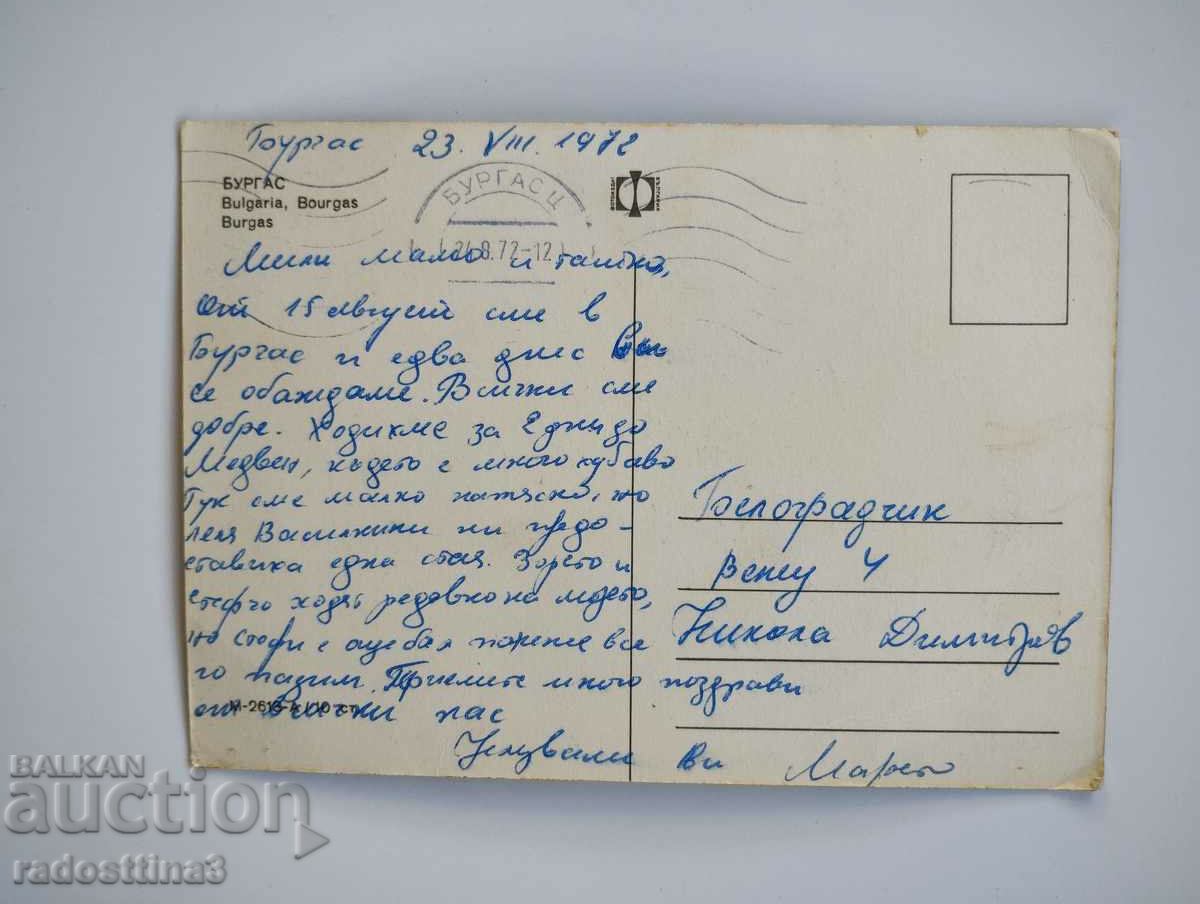 Бургас 23. VIII. 1972
БУРГАС
Bulgaria, Bourgas
Burgas
БУРГАС Ц
24.8.72-12
ФОТОИЗДАТ
БЪЛГАРИЯ
Мили мамо и татко,
От 15 август сме в
Бургас и едва днес Ви
се обаждаме. Всички сме
добре. Ходихме за 2 дни до
Медвен, където е много хубаво
Тук сме малко натясно, но
леля Василкини ни предо-
ставиха една стая. Зорето и
Стефчо ходят редовно на морето,
но Стефи е още бая
го пазим. Приемете много поздрави
от всички нас
Целувам Ви Марето
М-2616-А
Белоградчик
4
Никола Димитров
BALKAN
auction
radosttina3